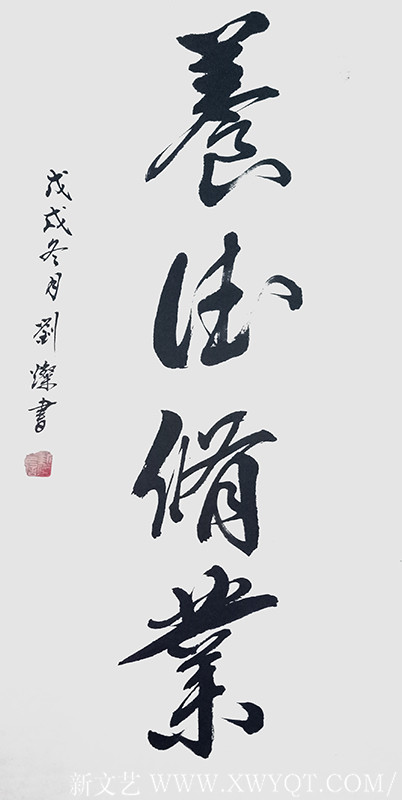 養德脩業
戊戌冬月劉燦書
新文艺 WWW.XWYQT.COM/